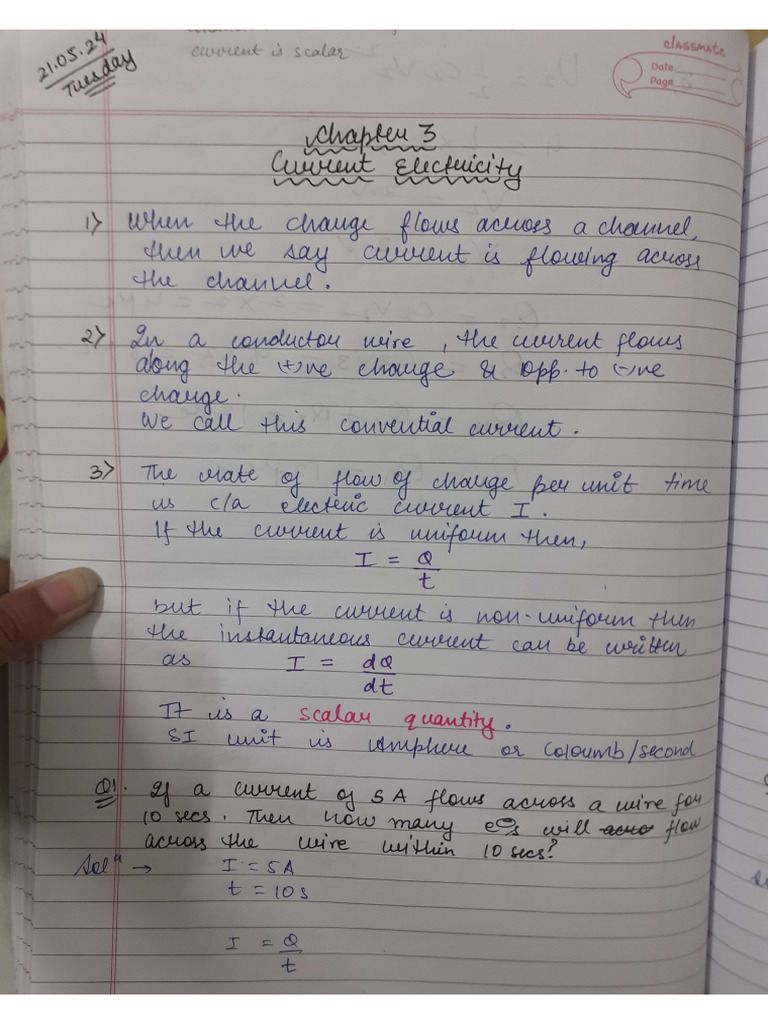 current is scalar
classmate
Date
Page
21.05.24
Tuesday
Chapter 3
Current Electricity
1) When the charge flows across a channel,
then we say current is flowing across
the channel.
2) In a conductor wire, the current flows
along the (+)ve charge & opp. to (-)ve
charge.
We call this convential current.
3) The rate of flow of charge per unit time
is c/a electric current I.
If the current is uniform then,
I = Q/t
but if the current is non-uniform then
the instantaneous current can be written
as I = dQ/dt
It is a scalar quantity.
SI unit is Amphere or Coloumb/second
Q1. If a current of 5 A flows across a wire for
10 secs. Then how many e⊖s will flow
across the wire within 10 secs?
Solⁿ → I = 5A
t = 10s
I = Q/t